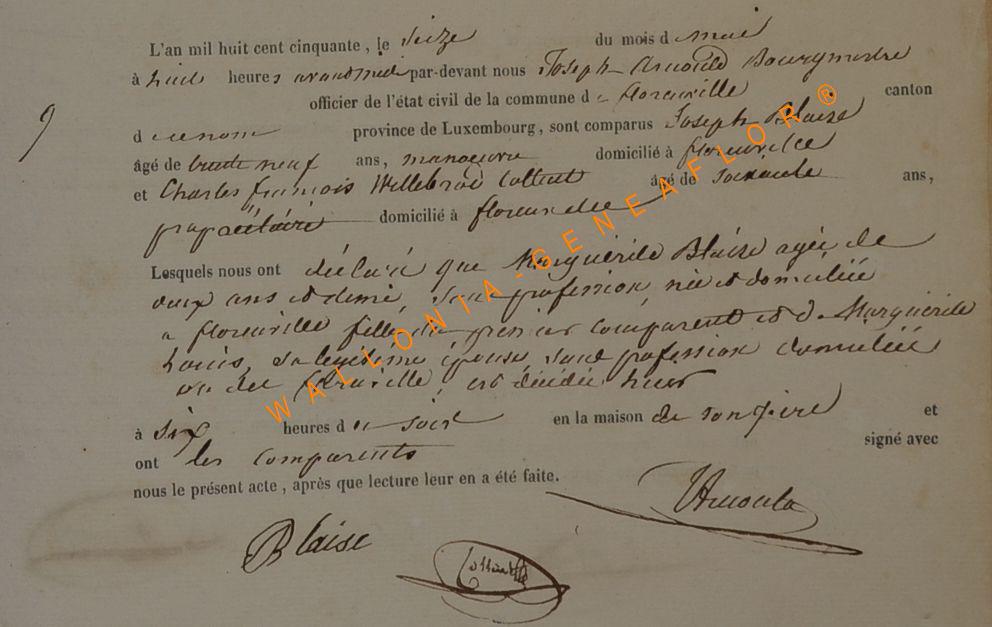 L'an mil huit cent cinquante, le Seize du mois d mai
à huit heures avant midi par-devant nous Joseph Arnould Bourgmestre
officier de l'état civil de la commune de florenville canton
d province de Luxembourg, sont comparus Joseph Blaise
âgé de trente neuf ans, manoeuvre domicilié à florenville
et Charles françois Willebrod âgé de soixante ans,
propriétaire domicilié à florenville
Lesquels nous ont déclaré que Marguerite Blaise agée de
deux ans et demi, sans profession, née et domiciliée
a florenville fille du premier comparent et de Marguerite
sa légitime épouse, sans profession domiciliée
florenville, est décédée hier
à six heures du soir en la maison de son père et
ont les comparents signé avec
nous le présent acte, après que lecture leur en a été faite.
Arnould
Blaise
9
WALLONIA-GENEAFLOR®